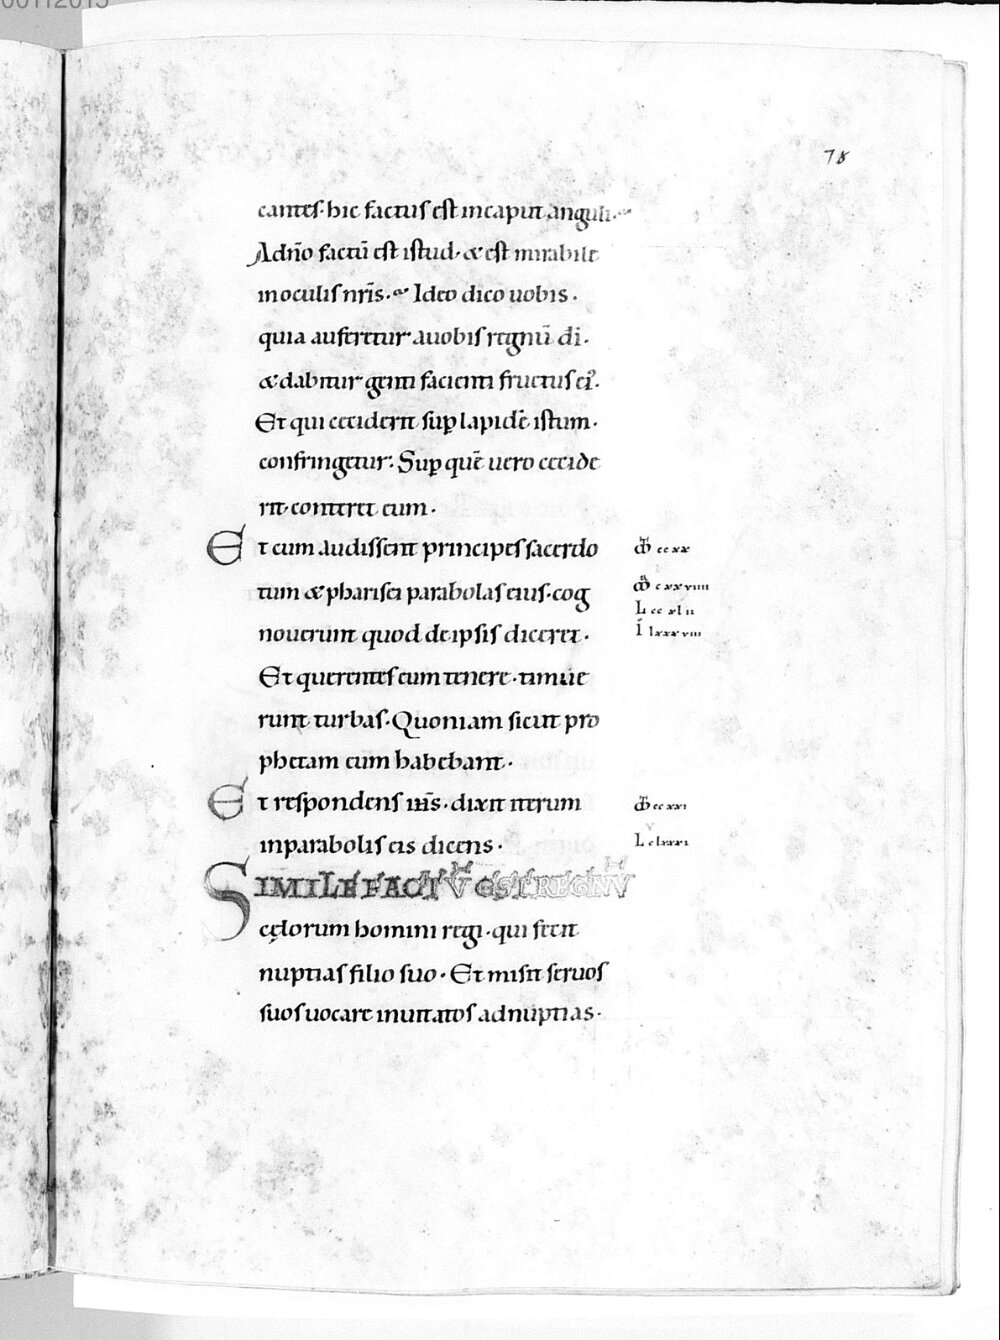 78
cantes · hic factus est incaput anguli ·
Adnō factū est istud · & est mirabile
inoculis nr̄is · Ideo dico uobis ·
quia auferetur auobis regnū dī ·
& dabitur genti facienti fructus ei᾽ ·
Et qui ceciderit sup̱ lapidē istum ·
confringetur · Sup̱ quē uero cecide
rit · conteret eum ·
Et cum audissent principes sacerdo
tum & pharisei parabolas eius · cog
nouerunt quod deipsis diceret ·
Et querentes eum tenere · timue
runt turbas · Quoniam sicut pro
phetam eum habebant ·
Et respondens ih̄s · dixit iterum
inparabolis eis dicens ·
SIMILE FACTV̄ EST REGNV̄
cęlorum homini regi · qui fecit
nuptias filio suo · Et misit seruos
suos uocare inuitatos adnuptias ·
ccxx
cxxviiii
L ccxlii
I lxxxviii
ccxxi
L clxxxi